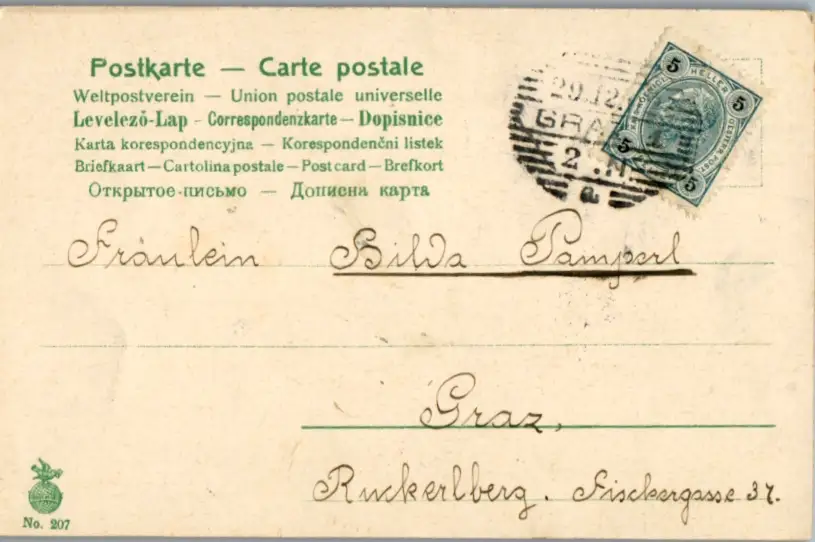 Postkarte — Carte postale
Weltpostverein — Union postale universelle
Levelező-Lap - Correspondenzkarte — Dopisnice
Karta korespondencyjna — Korespondenčni listek
Briefkaart — Cartolina postale — Post card — Brefkort
Открытое письмо — Дописна карта
29.12.
GRAZ
2 . N.
a
5 HELLER 5
5 5
OESTERR. POST
Fräulein Hilda Pamperl
Graz,
Ruckerlberg. Fischergasse 37.
No. 207